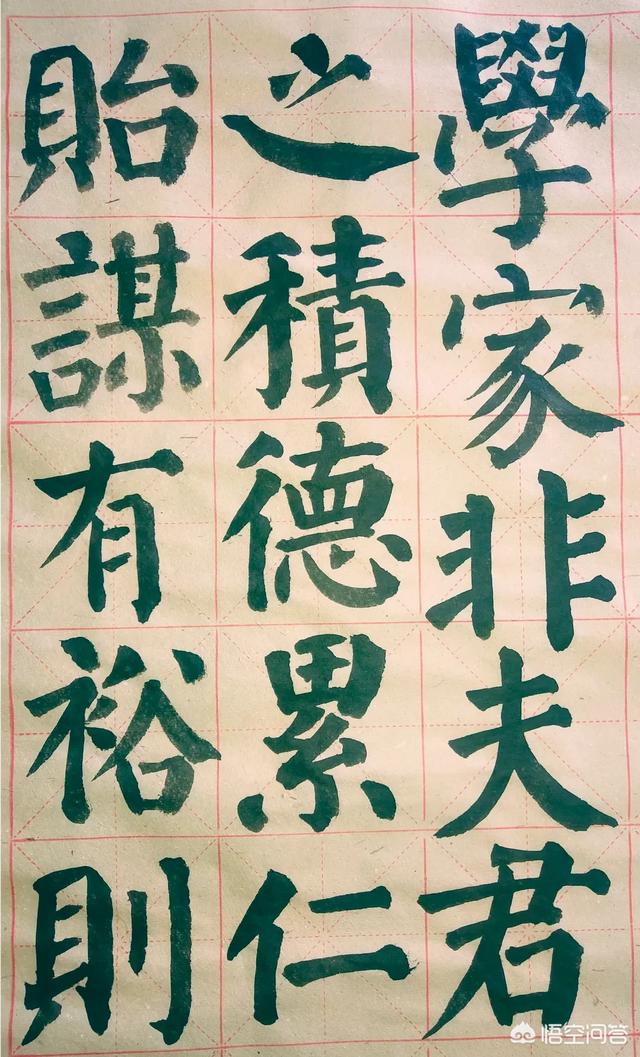 學家非夫君
之積德累仁
貽謀有裕則
悟空问答